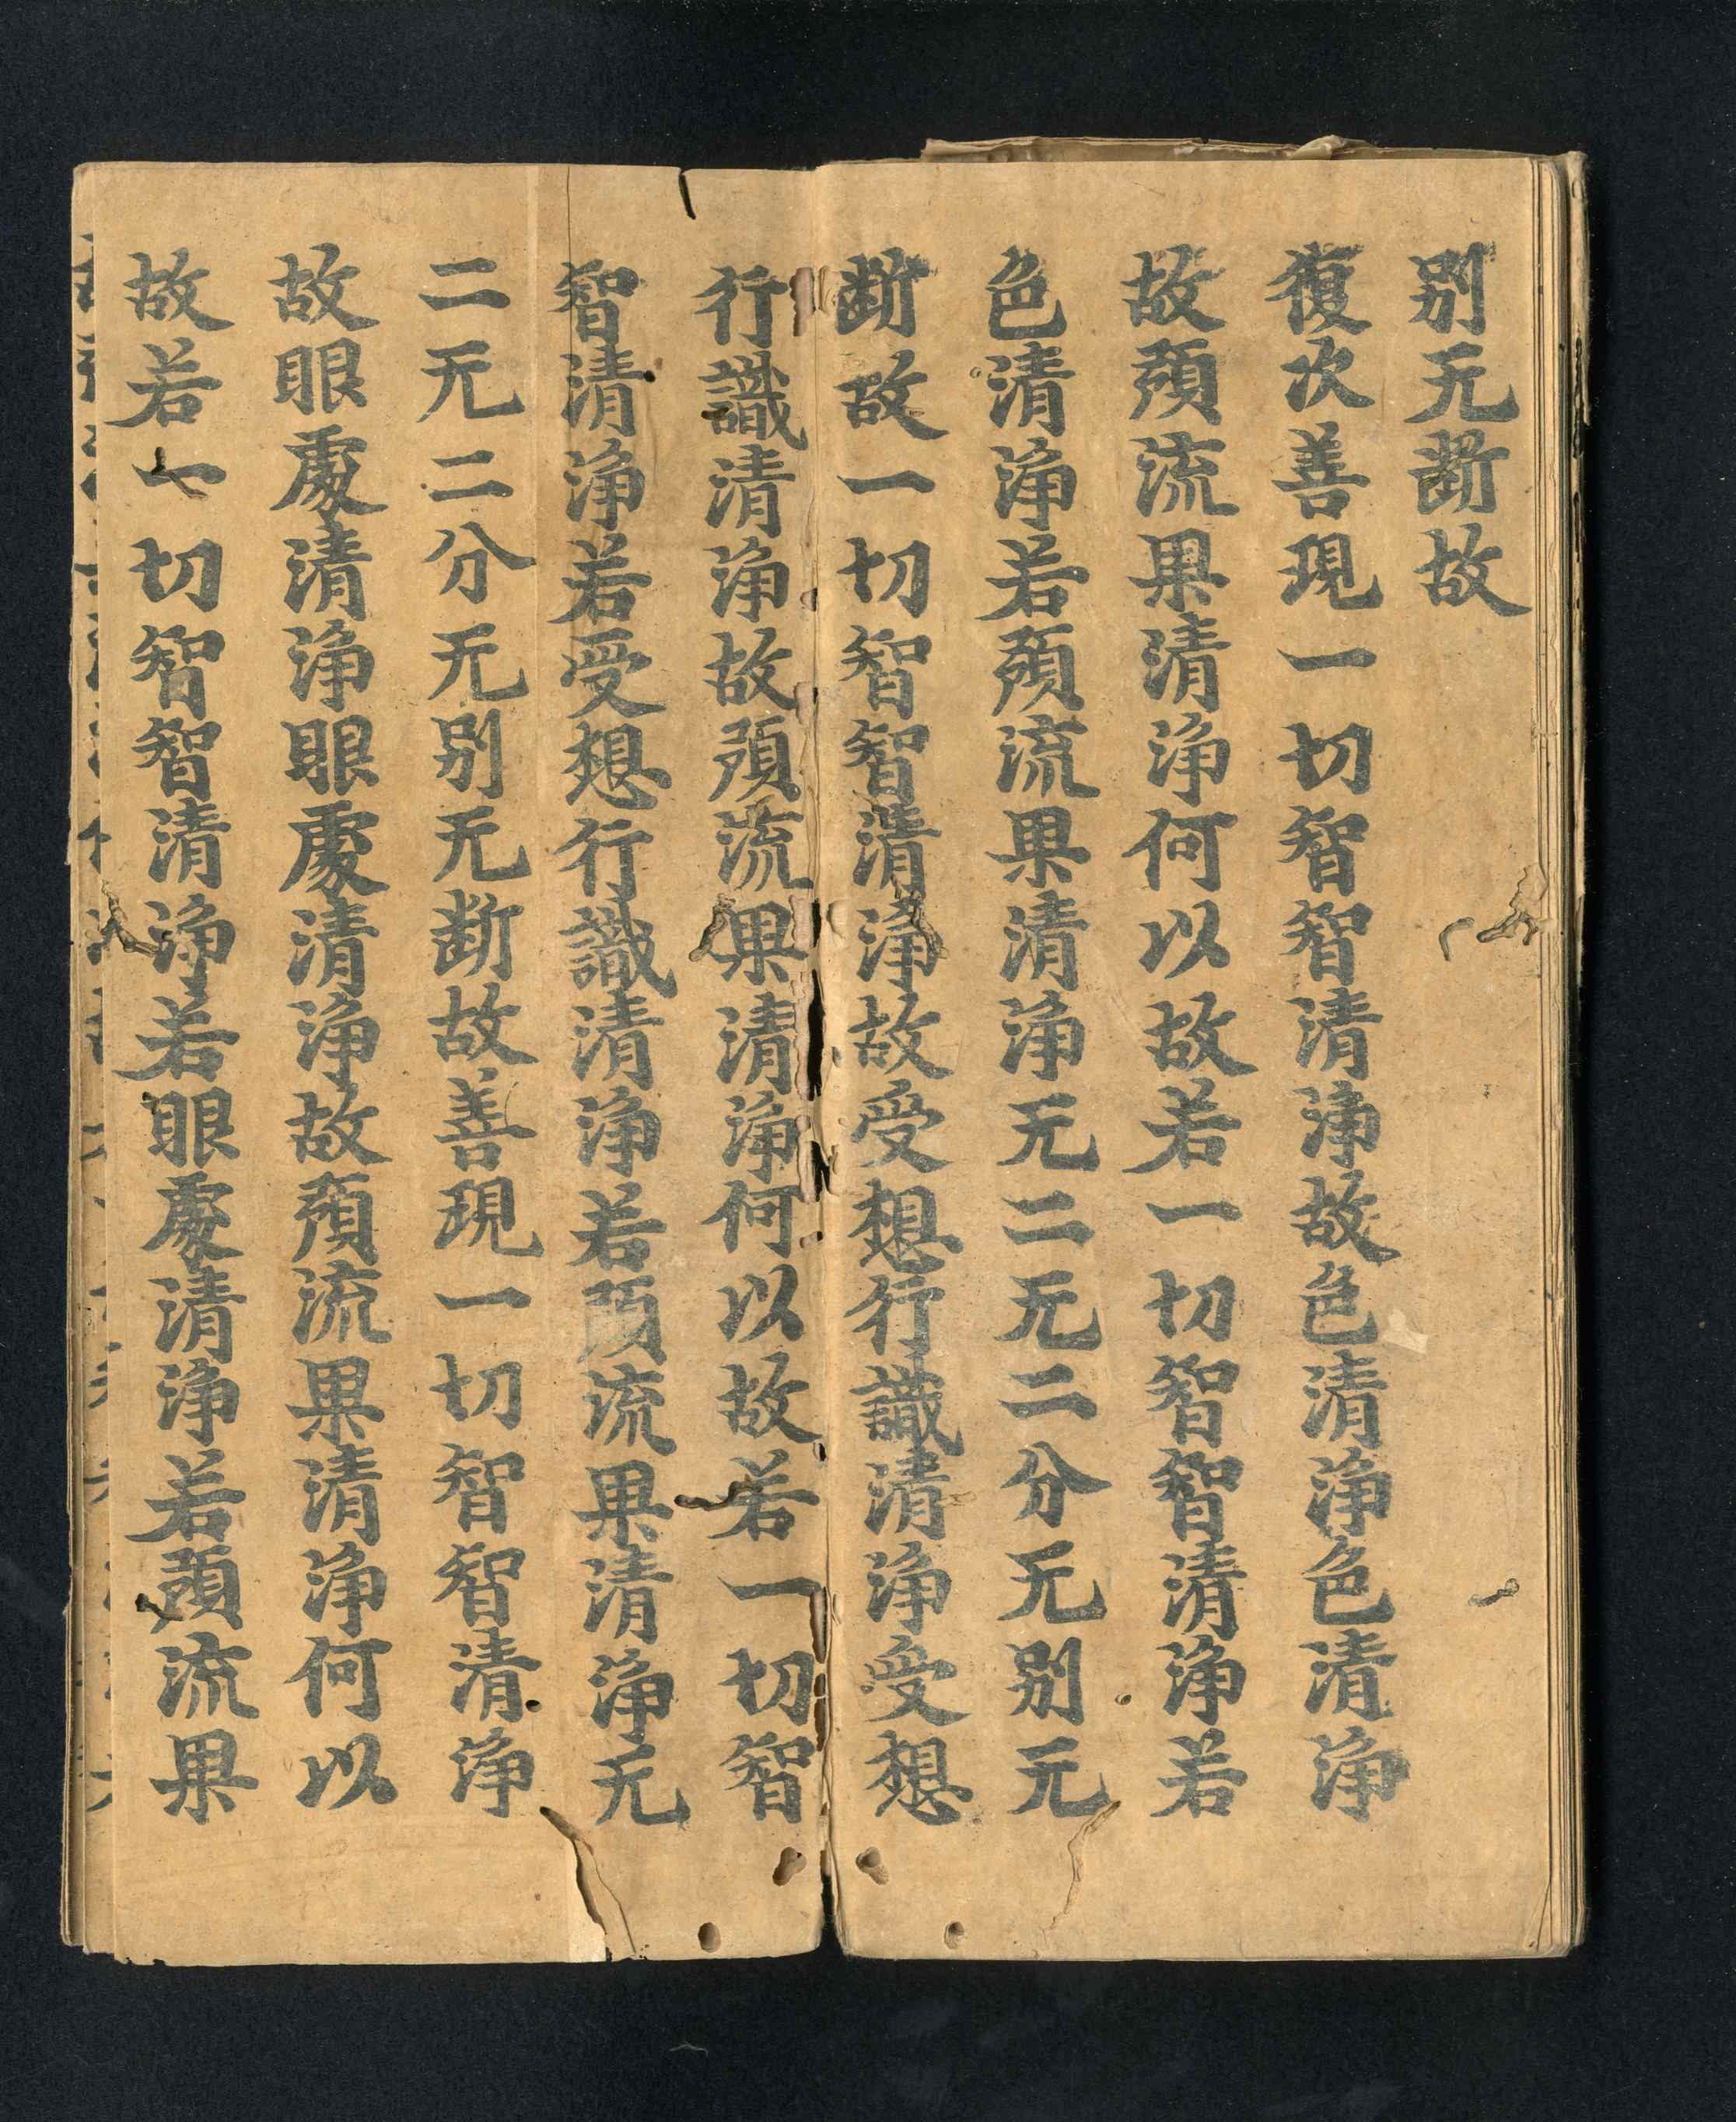 别无斷故
復次善現一切智智清淨故色清淨色清淨
故預流果清淨何以故若一切智智清淨若
色清淨若預流果清淨无二无二分无别无
斷故一切智智清淨故受想行識清淨受想
行識清淨故預流果清淨何以故若一切智
智清淨若受想行識清淨若預流果清淨无
二无二分无别无斷故善現一切智智清淨
故眼處清淨眼處清淨故預流果清淨何以
故若一切智智清淨若眼處清淨若預流果